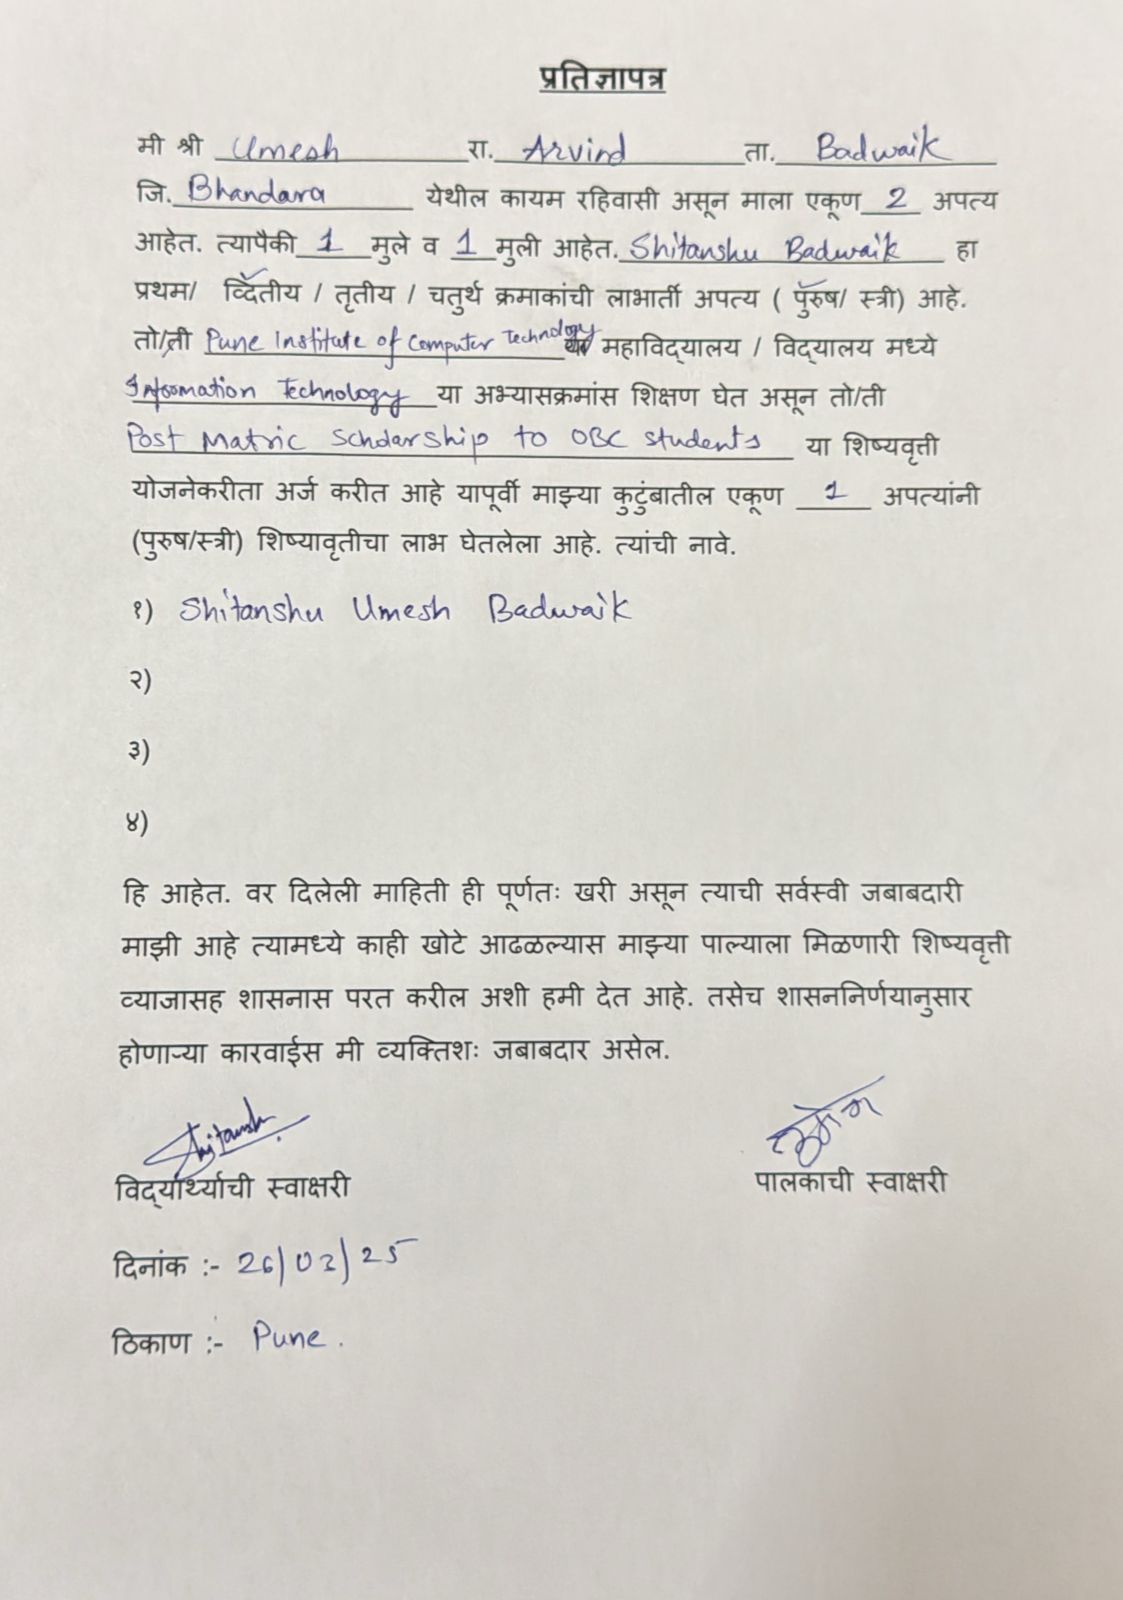 प्रतिज्ञापत्र
मी श्री Umesh रा. Arvind ता. Badwaik
जि. Bhandara येथील कायम रहिवासी असून माला एकूण 2 अपत्य
आहेत. त्यापैकी 1 मुले व 1 मुली आहेत. Shitanshu Badwaik हा
प्रथम/ व्दितीय / तृतीय / चतुर्थ क्रमाकांची लाभार्ती अपत्य ( पुरुष/ स्त्री) आहे.
तो/ती Pune Institute of Computer Technology महाविद्यालय / विद्यालय मध्ये
Information Technology या अभ्यासक्रमांस शिक्षण घेत असून तो/ती
Post Matric Scholarship to OBC students या शिष्यवृत्ती
योजनेकरीता अर्ज करीत आहे यापूर्वी माझ्या कुटुंबातील एकूण 1 अपत्यांनी
(पुरुष/स्त्री) शिष्यावृतीचा लाभ घेतलेला आहे. त्यांची नावे.
१) Shitanshu Umesh Badwaik
२)
३)
४)
हि आहेत. वर दिलेली माहिती ही पूर्णतः खरी असून त्याची सर्वस्वी जबाबदारी
माझी आहे त्यामध्ये काही खोटे आढळल्यास माझ्या पाल्याला मिळणारी शिष्यवृत्ती
व्याजासह शासनास परत करील अशी हमी देत आहे. तसेच शासननिर्णयानुसार
होणाऱ्या कारवाईस मी व्यक्तिशः जबाबदार असेल.
Shitanshu उमेश
विद्यार्थ्याची स्वाक्षरी पालकाची स्वाक्षरी
दिनांक :- 26/03/25
ठिकाण :- Pune.